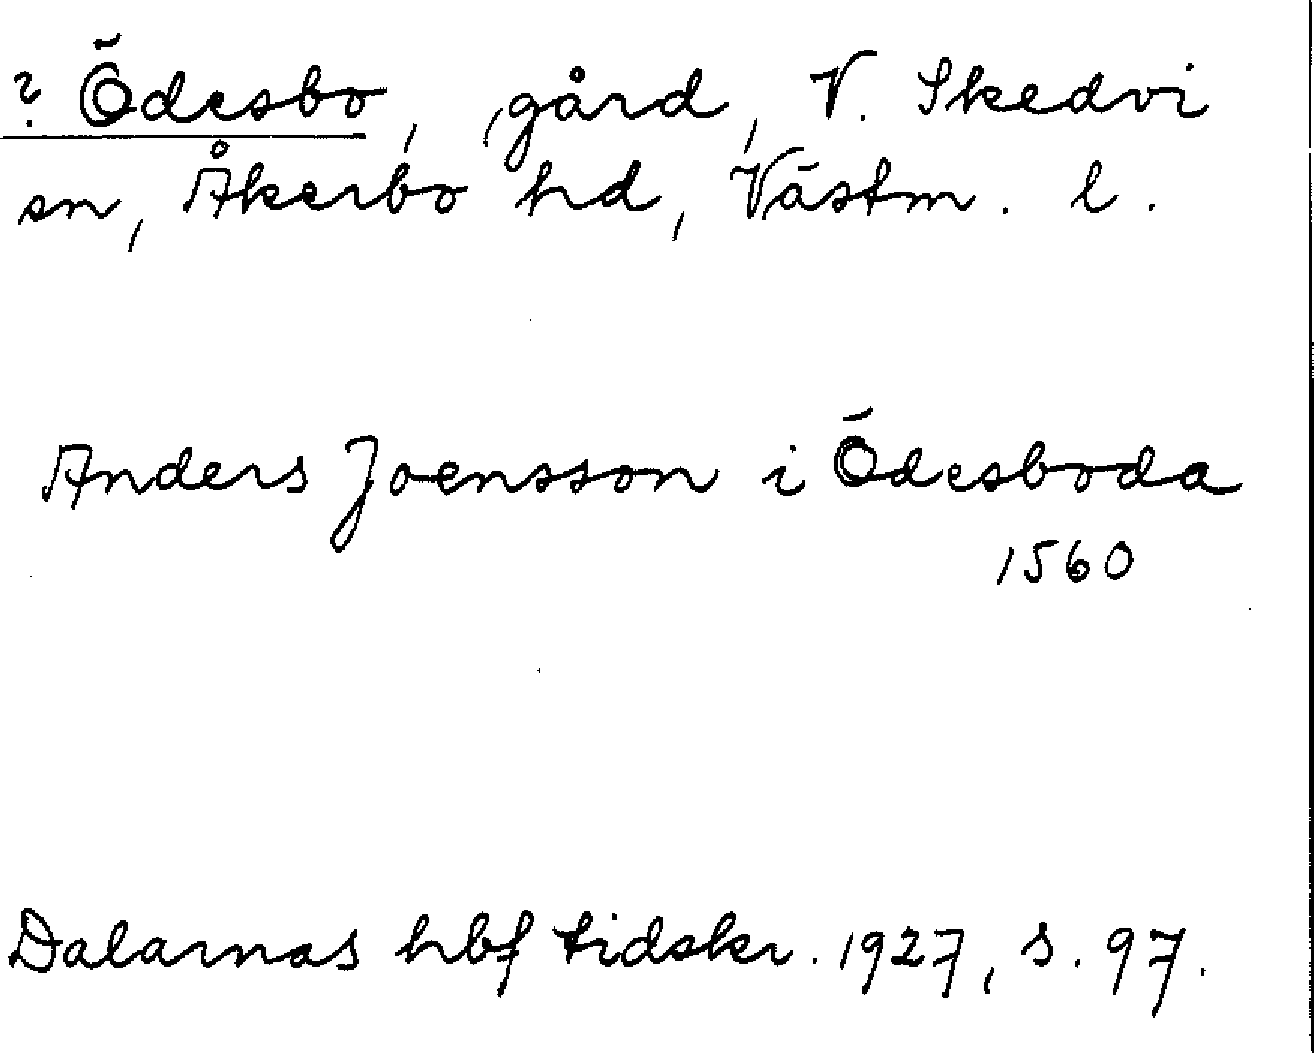 ? Ödesbo, gård, V. Skedvi
sn, Åkerbo hd, Västm. l.
Anders Joensson i Ödesboda
1560
Dalarnas hbf tidskr. 1927, s. 97.